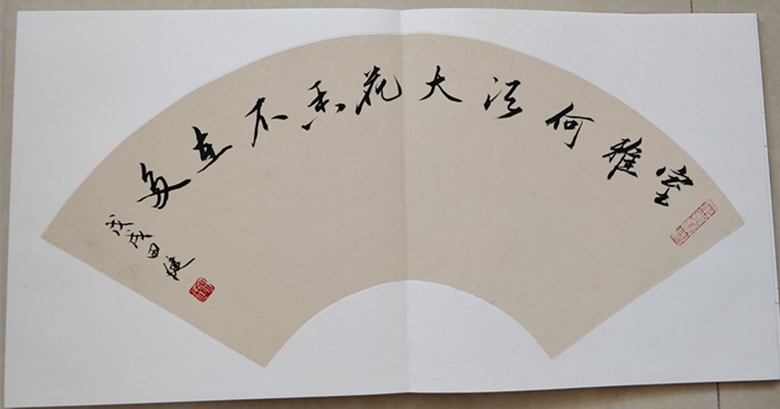 室雅何须大花香不在多
戊戌田健